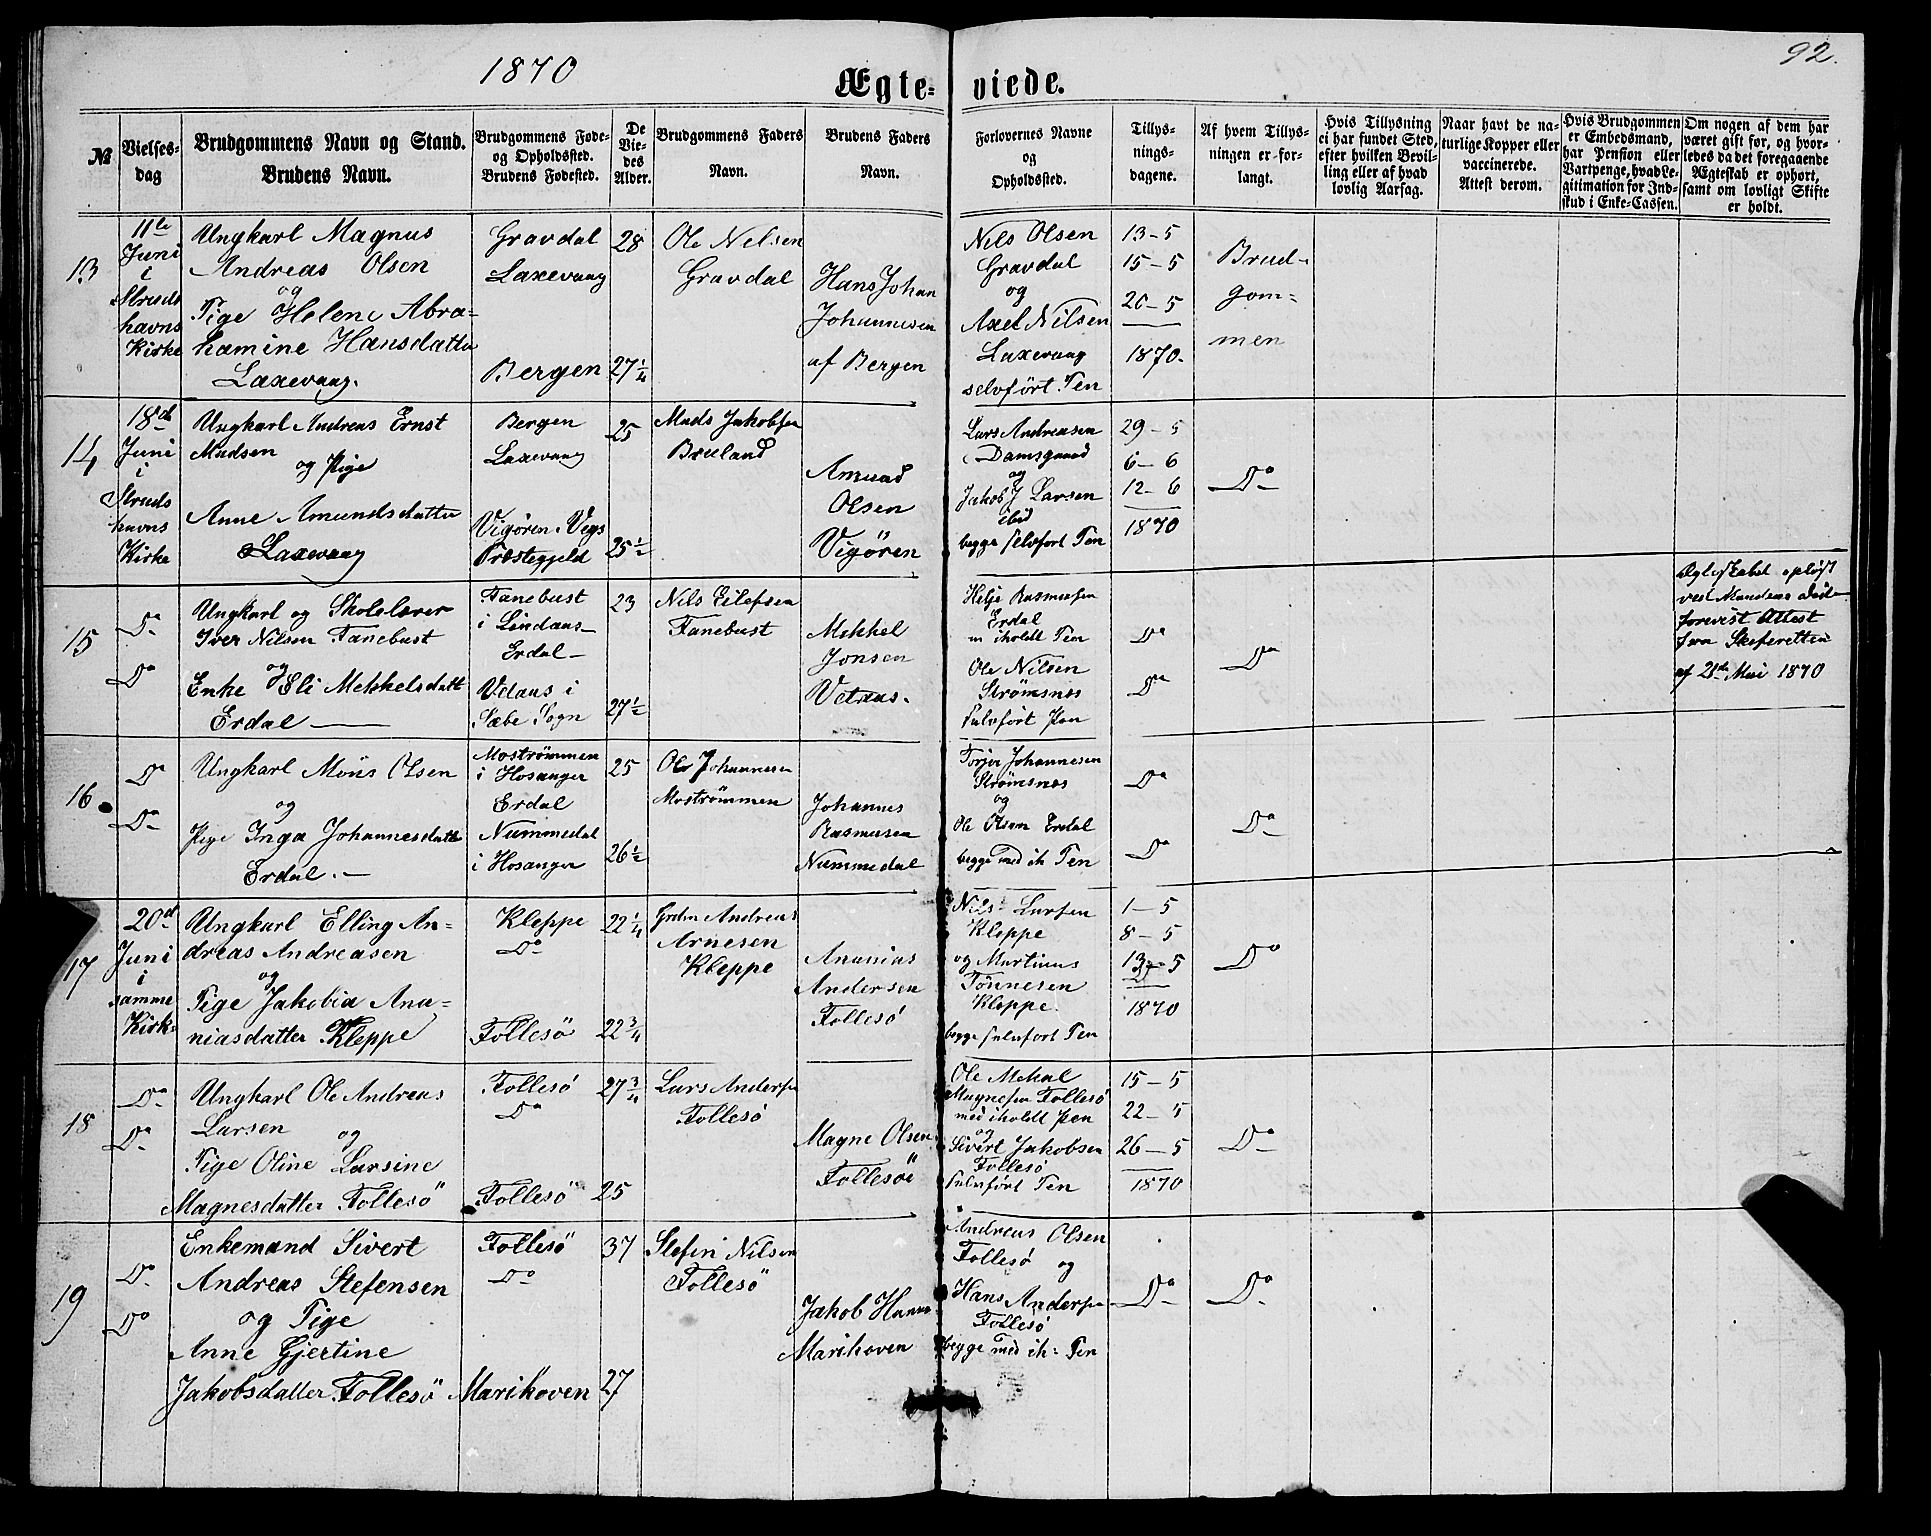 1870
92.
Ægte- viede.
№
Vielses-
dag
Brudgommens Navn og Stand.
Brudens Navn.
Brudgommens Føde-
og Opholdssted.
Brudens Fødested.
De
Vie-
des
Alder.
Brudgommens Faders
Navn.
Brudens Faders
Navn.
Forlovernes Navne
og
Opholdssted.
Tillys-
nings-
dagene.
Af hvem Tillys-
ningen er for-
langt.
Hvis Tillysning
ei har fundet Sted,
efter hvilken Bevil-
ling eller af hvad
lovlig Aarsag.
Naar havt de na-
turlige Kopper eller
vaccinerede.
Attest derom.
Hvis Brudgommen
er Embedsmand,
har Pension eller
Vartpenge, hvad Le-
gitimation for Ind-
skud i Enke-Cassen.
Om nogen af dem har
været gift før, og hvor-
ledes da det foregaaende
Ægteskab er ophørt,
samt om lovligt Skifte
er holdt.
13
11te
Juni
i
Struds
havns
Kirke
Ungkarl Magnus
Andreas Olsen
og
Pige Helene Abra-
hamine Hansdatter
Laxevaag.
Gravdal
Laxevaag
Bergen
28
27 1/4
Ole Nilsen
Gravdal
Hans Johan
Johannesen
af Bergen
Nils Olsen
Gravdal
og
Axel Nilsen
Laxevaag
selvført Pen
13-5
15-5
20-5
1870.
Brud-
gom-
men
14
18de
Juni
i
Struds
havns
Kirke
Ungkarl Andreas Ernst
Madsen
og Pige
Anne Amundsdatter
Laxevaag
Bergen
Laxevaag
Vigören i Vigs
Præstegjeld
25
25 1/2
Mads Jakobsen
Bruland
Amund
Olsen
Vigören
Lars Andreasen
Damsgaard
og
Jakob J Larsen
ibid
begge selvført Pen
29-5
6-6
12-6
1870
Do
15
Do
Do
Ungkarl og Skolelærer
Iver Nilsen Fanebust
og
Enke Eli Mekkelsdatt
Erdal
Fanebust
i Lindaas
Erdal
Vdaas i
Sæbø Sogn
23
27 1/2
Nils Eilefsen
Fanebust
Mekkel
Jonsen
Vdaas.
Helje Rasmusen
Erdal
m iholdt Pen
Ole Nilsen
Strømsnes
selvført Pen
Do
Do
Do
Ægteskabet opløst
ved Mandens Død
forevist Attest
fra Skifteretten
af 21de Mai 1870
16
Do
Do
Ungkarl Möns Olsen
og
Pige Inga Johannesdatt
Erdal.
Mostrømmen
i Hosanger
Erdal
Nummedal
i Hosanger
25
26 1/2
Ole Johannesen
Mostrømmen
Johannes
Rasmusen
Nummedal
Torjer Johannesen
Strømsnes
og
Ole Olsen Erdal
begge med ih Pen
Do
Do
Do
17
20de
Juni
i
samme
Kirke
Ungkarl Elling An-
dreas Andreasen
og
Pige Jakobia Ana-
niasdatter Kleppe
Kleppe
Do
Follesö
22 1/4
22 3/4
Grdm Andreas
Arnesen
Kleppe
Ananias
Andersen
Follesö
Nils Larsen
Kleppe
og Martinus
Tönnesen
Kleppe.
begge selvført Pen
1-5
8-5
13-5
1870
Do
18
Do
Do
Ungkarl Ole Andreas
Larsen
og
Pige Oline Larsine
Magnesdatter Follesö
Follesö
Do
Follesö
27 3/4
25
Lars Andersen
Follesö
Magne Olsen
Follesö
Ole Mekal
Magnesen Follesö
med iholdt Pen
og
Sivert Jakobsen
Follesö
selvført Pen
15-5
22-5
26-5
1870
Do
19
Do
Do
Enkemand Sivert
Andreas Stefensen
og Pige
Anne Gjertine
Jakobsdatter Follesö
Follesö
Do
Marihoven
37
27
Stefen Nilsen
Follesö
Jakob Hans-
Marihoven
Andreas Olsen
Follesö og
Hans Andersen
Follesö
begge med ih: Pen
Do
Do